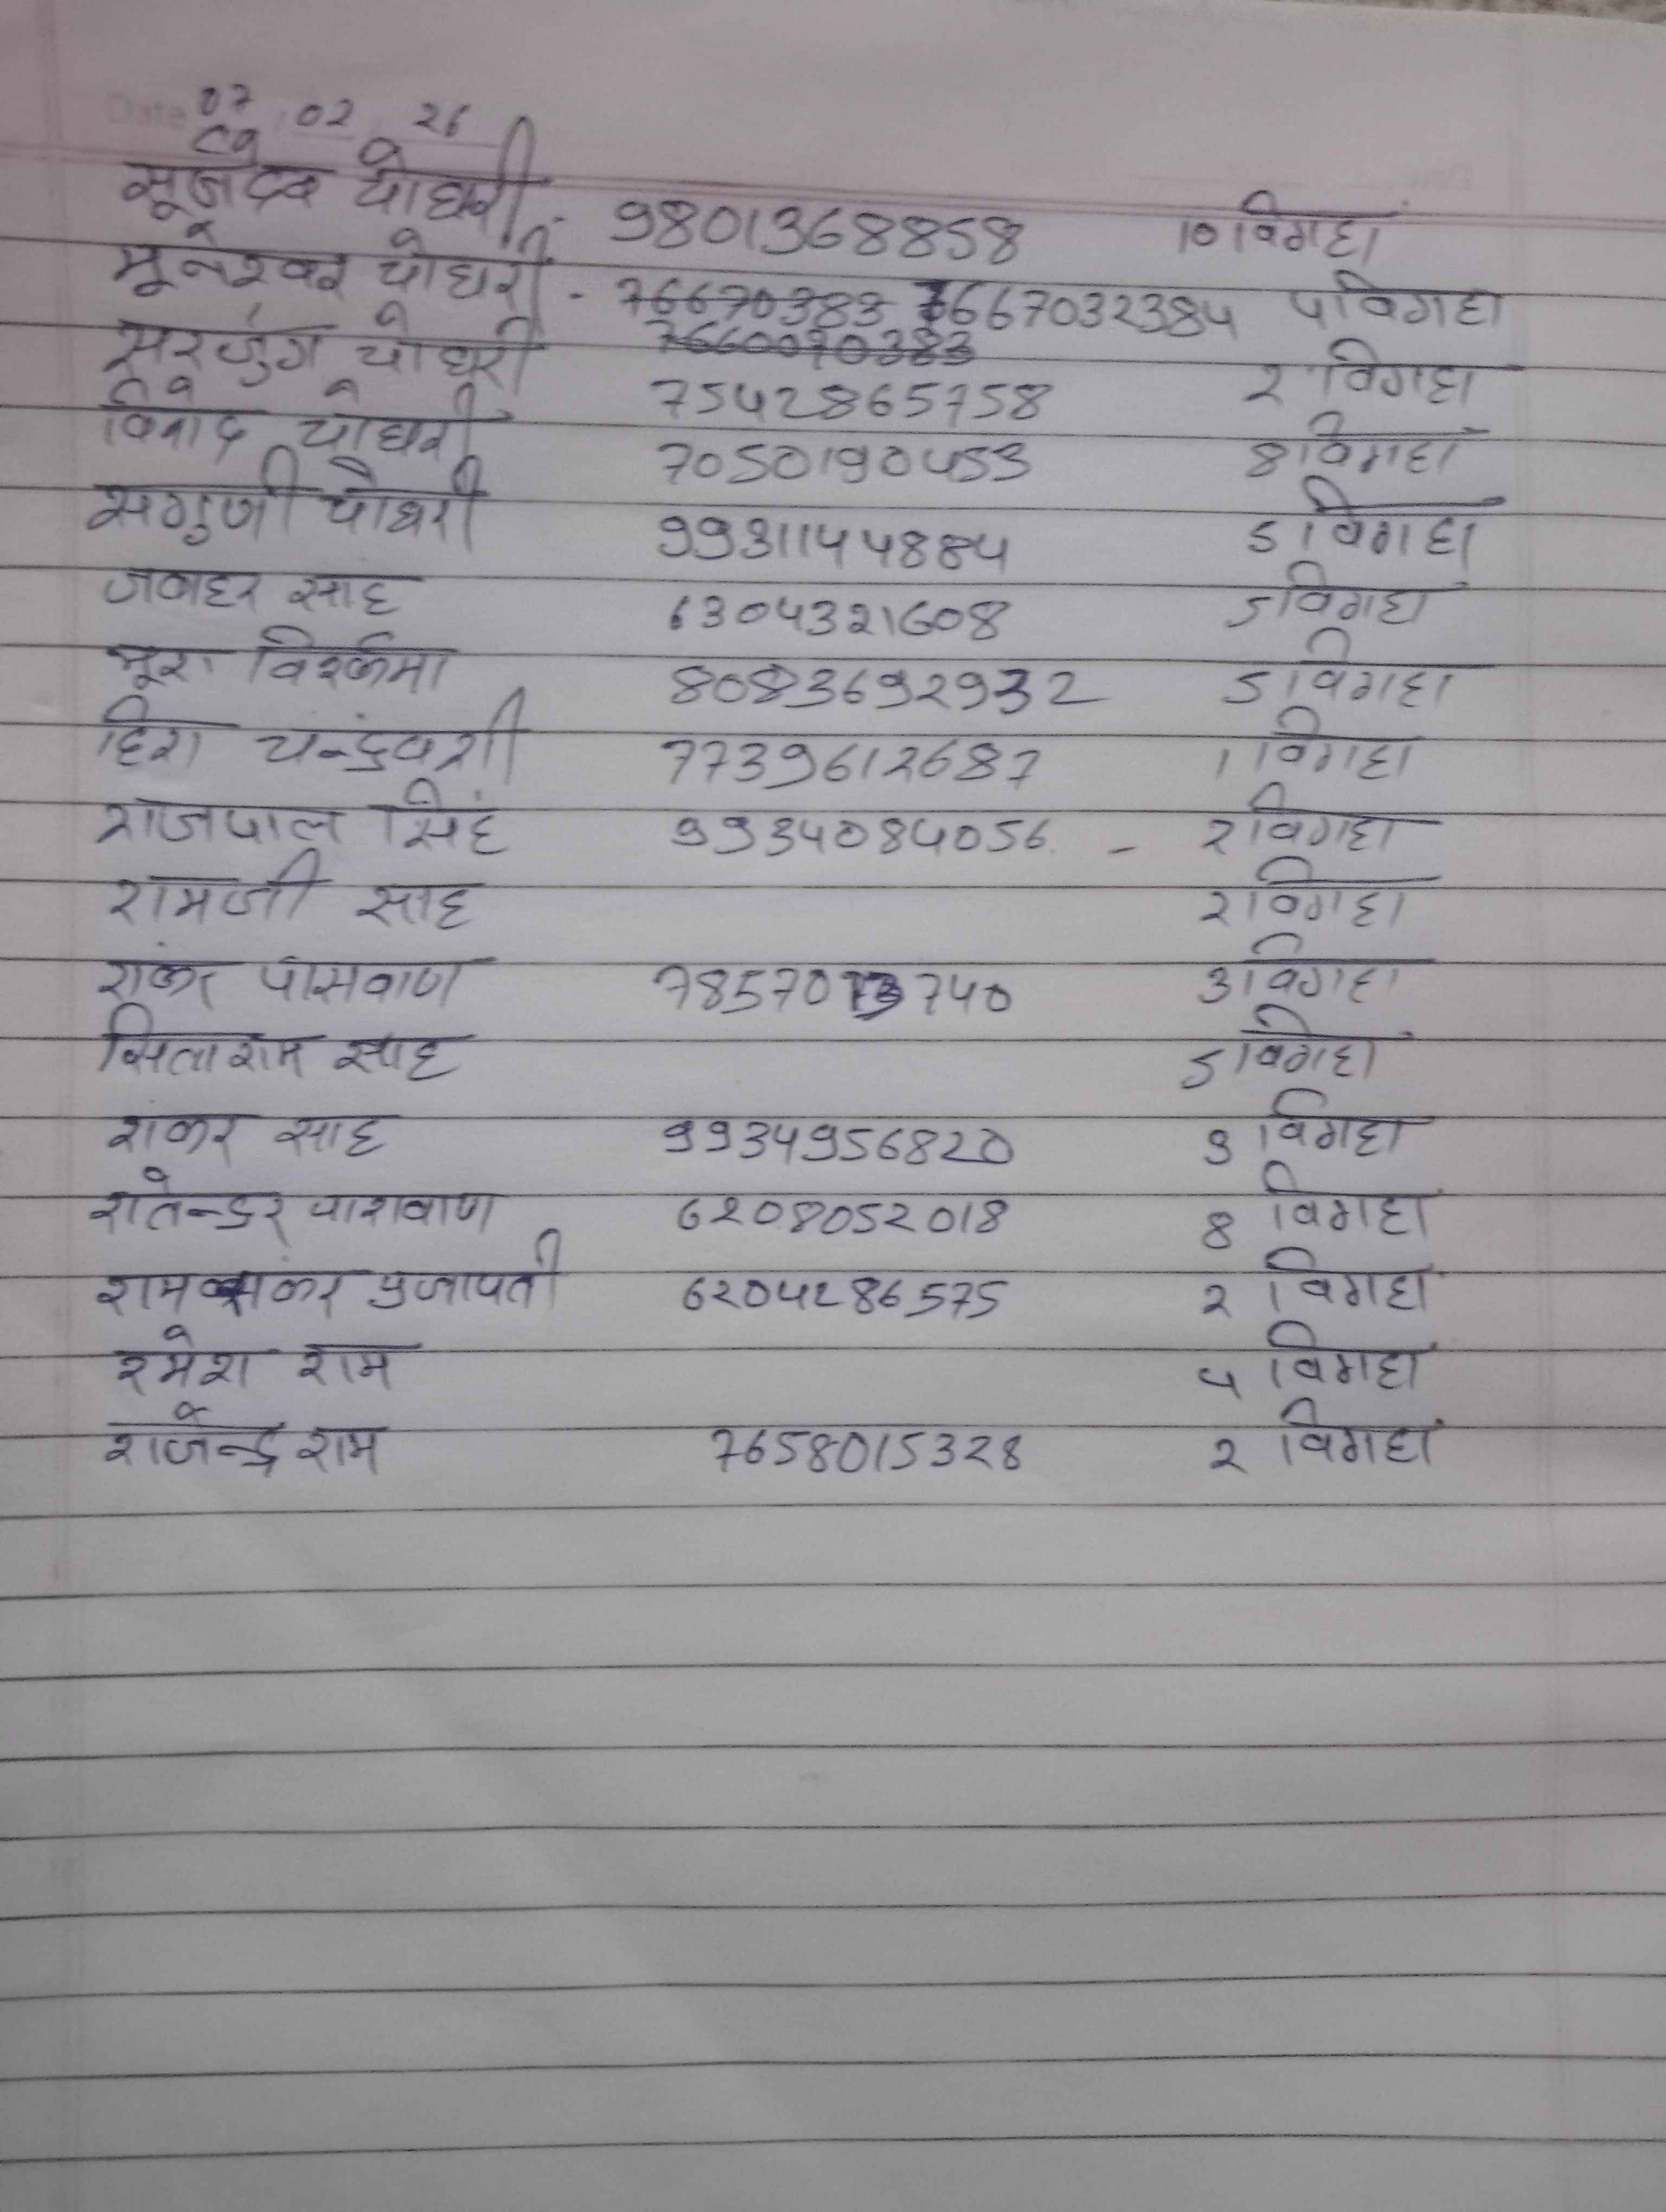 Date 07 02 26
सूजदेव चौधरी :- 9801368858 10 विगहा
मूनेश्वर चौधरी - 76670383 7667032384 5 विगहा
7660070383
सरजुंग चौधरी 7542865758 2 विगहा
विनोद चौधरी 7050190453 8 विगहा
सगुजी चौधरी 9931144884 5 विगहा
जवाहर साह 6304321608 5 विगहा
भूरा विश्कर्मा 8083692932 5 विगहा
हिरा चन्द्रंवशी 7739612687 1 विगहा
राजपाल सिंह 9934084056 - 2 विगहा
रामजी साह 2 विगहा
शंकर पासवाण 7857013740 3 विगहा
सिताराम साह 5 विगहा
शंकर साह 9934956820 9 विगहा
शतेन्डर पाशवाण 6208052018 8 विगहा
राम शंकर प्रजापती 6204286575 2 विगहा
रमेश राम 5 विगहा
राजेन्द्र राम 7658015328 2 विगहा